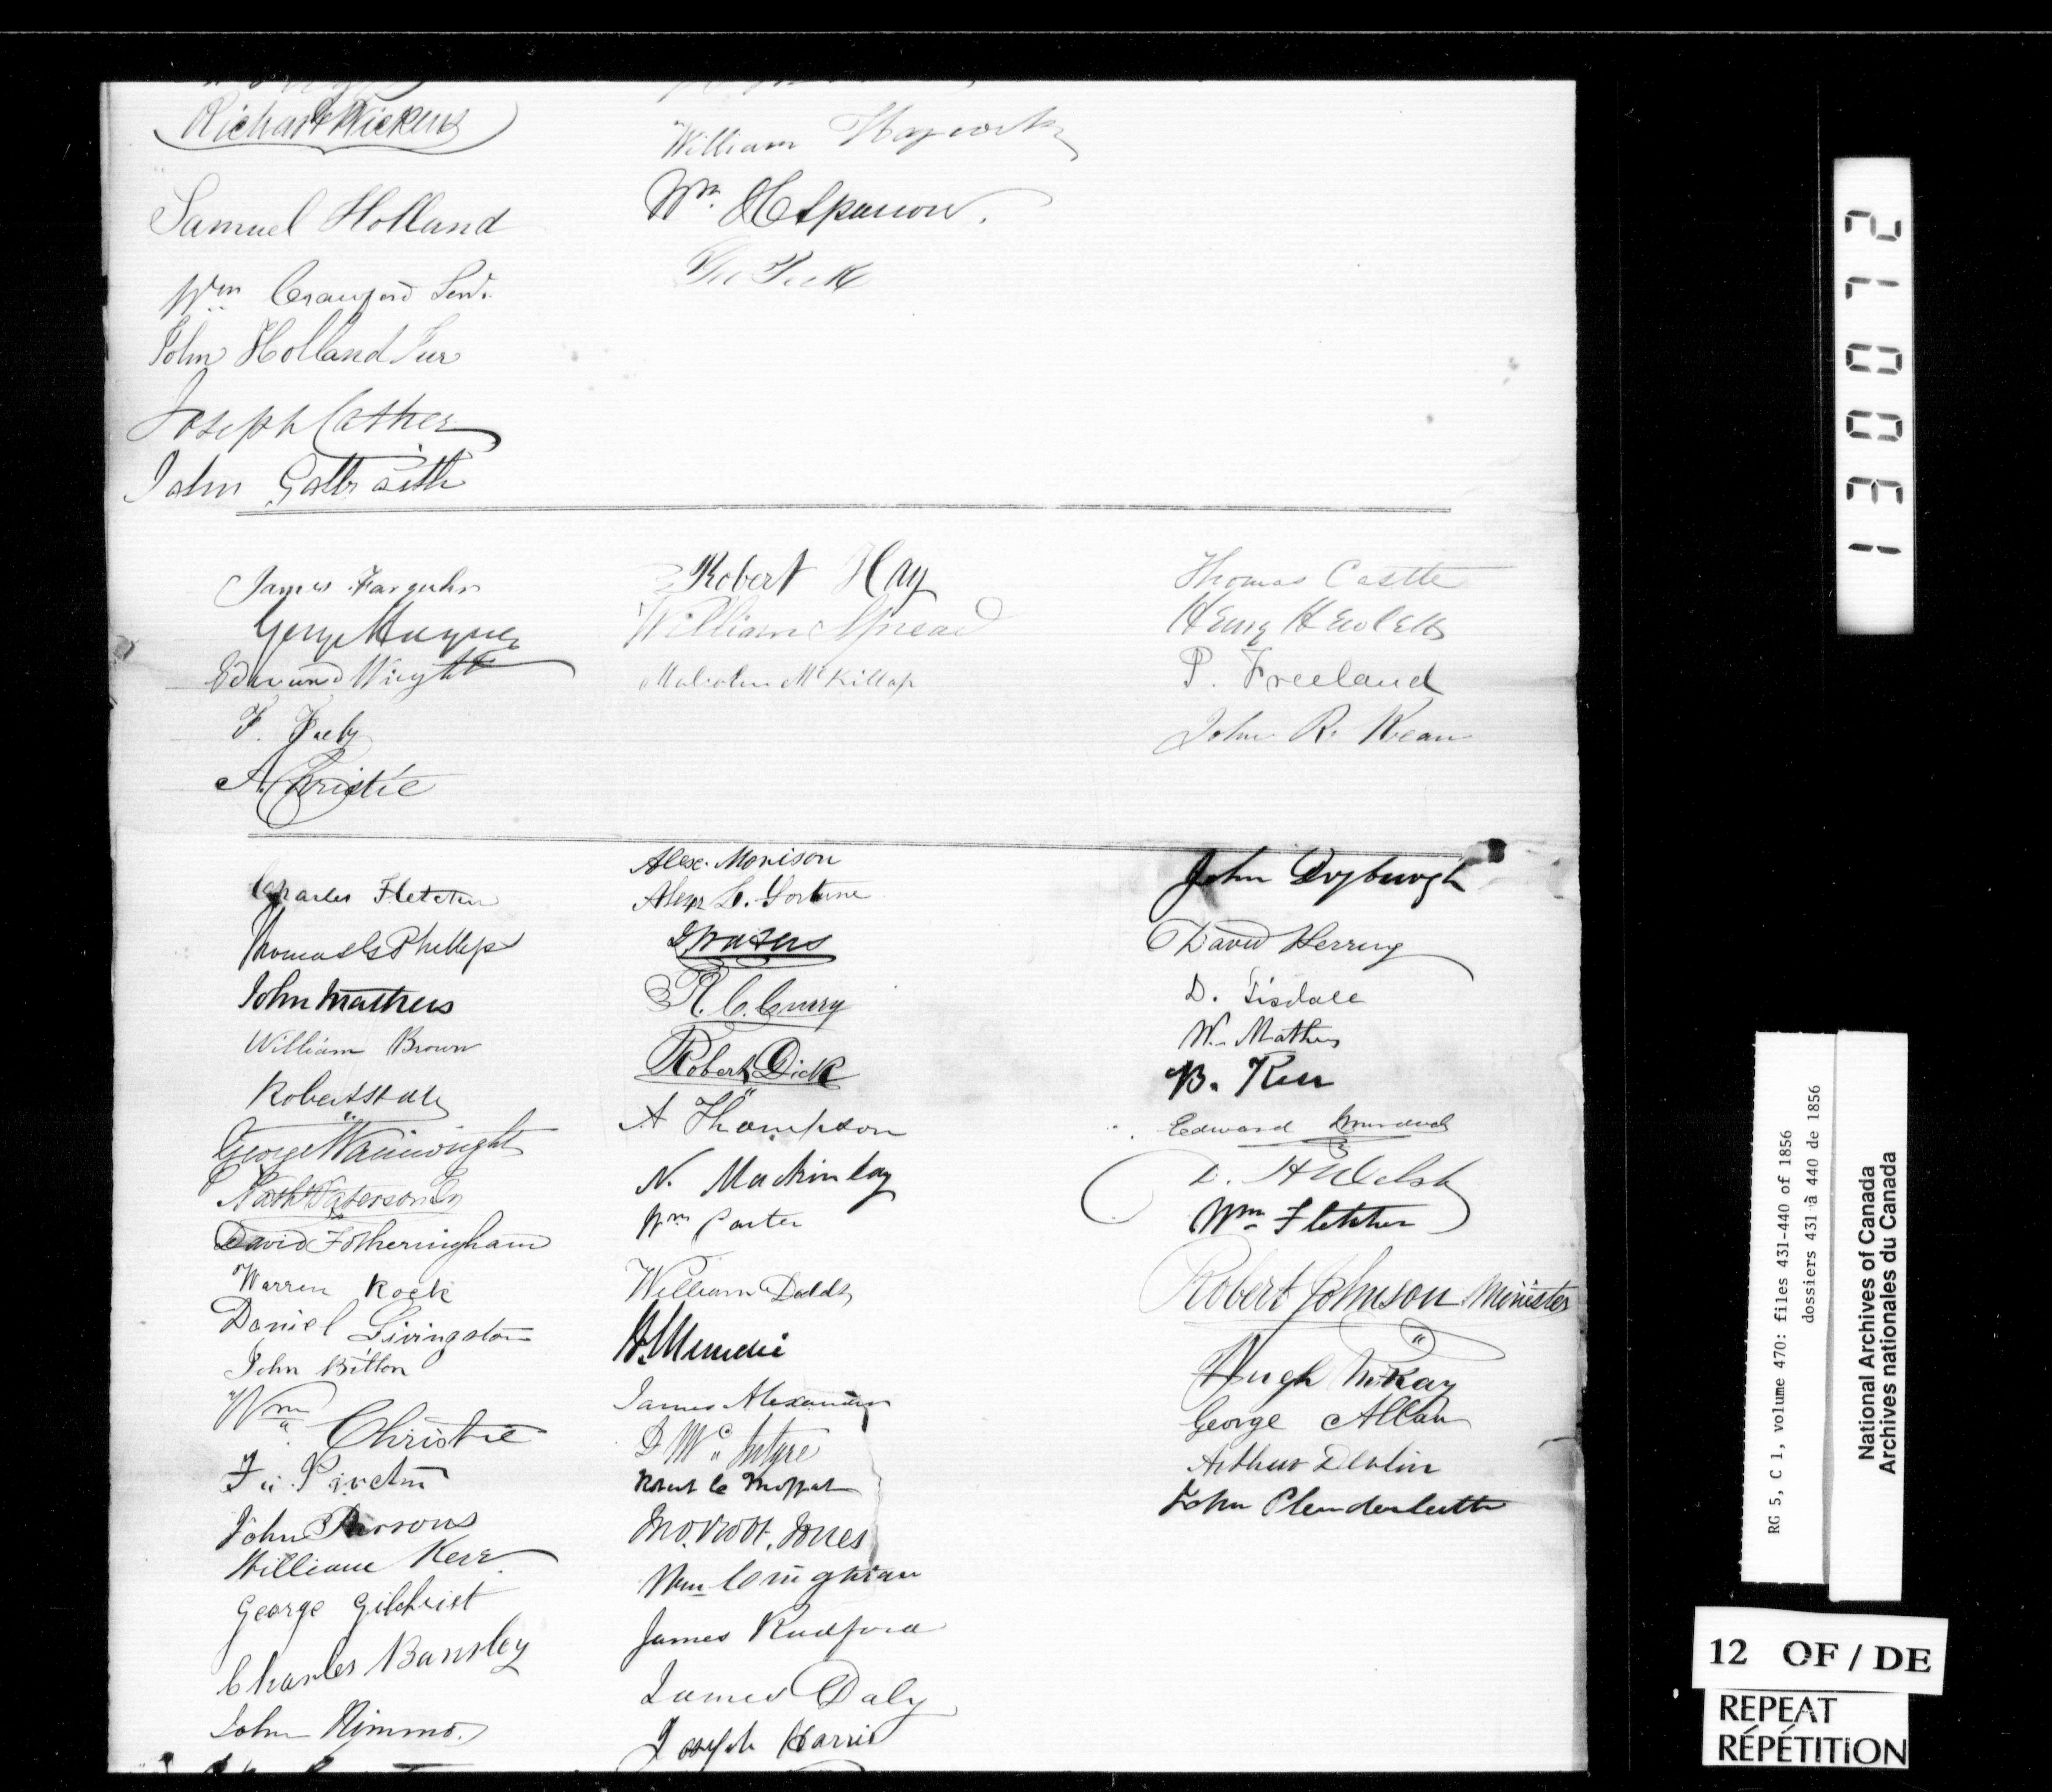 Richard Wickens
Samuel Holland
Wm Crauford Senr.
John Holland Jur
Joseph Cather
John Galbraith
William Hayworth
Wm. H Sparrow.
Geo Peck
James Farquhar
George
Edmund Wright
F. Feeby
A. Christie
Robert Hay
William
Malcolm McKillop
Thomas Castle
Henry Hewlett
P. Freeland
John R. Kean
Charles Fletcher
Thomas G Phillips
John Mathers
William Brown
Robert
George Wainwright
Paterson
David Fotheringham
Warren Rock
Daniel Livingston
John Bitton
Wm Christie
Proctor
John Parsons
William Kerr
George Gilchrist
Charles Bansley
John Nimmo.
Alex. Morison
Alexr L. Fortune
R. C. Curry
Robert Dick
A Thompson
N. Mackinlay
Wm Carter
William Dodds
W. Mundie
James Alexander
D McIntyre
Robert C Moffat
Jones
Wm
James Radford
James Daly
Joseph Harris
John Dryburgh
David Herring
D. Tisdale
W. Mathers
B. Kerr
Edward
D. H Welsh
Wm Fletcher
Robert Johnson Minister
Hugh McKay
George Allan
Arthur Devlin
John Plenderleith
130072
RG 5, C 1, volume 470: files 431-440 of 1856
dossiers 431 à 440 de 1856
National Archives of Canada
Archives nationales du Canada
12 OF / DE
REPEAT
RÉPÉTITION